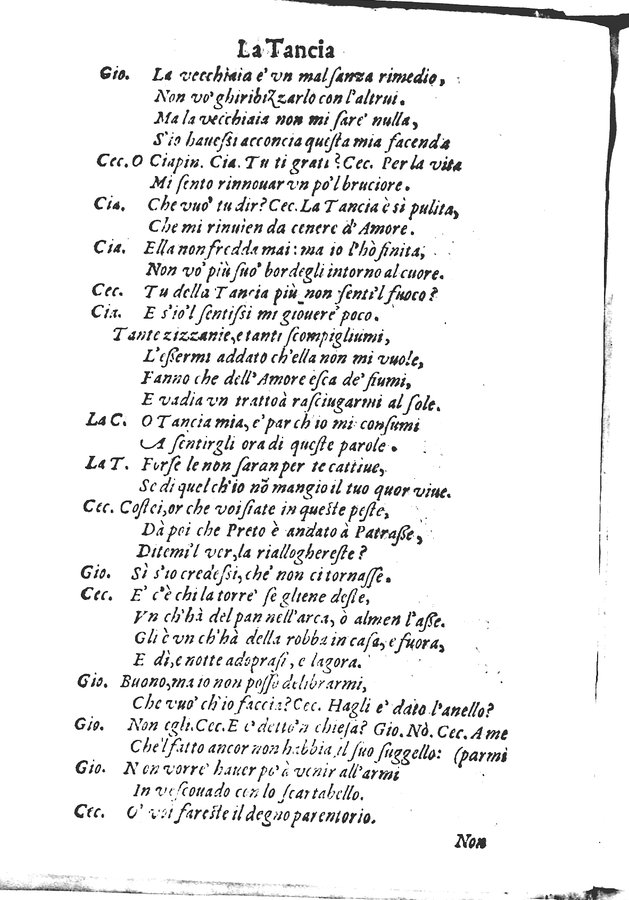 La Tancia
Gio. La vecchiaia e' vn mal sanza rimedio,
Non vo' ghiribizzarlo con l'altrui.
Ma la vecchiaia non mi sare' nulla,
S'io hauessi acconcia questa mia facenda
Cec. O Ciapin. Cia. Tu ti grati? Cec. Per la vita
Mi sento rinnouar vn po'l bruciore.
Cia. Che vuo' tu dir? Cec. La Tancia è sì pulita,
Che mi rinuien da cenere d'Amore.
Cia. Ella non fredda mai: ma io l'hò finita,
Non vo' più suo' bordegli intorno al cuore.
Cec. Tu della Tancia più non senti'l fuoco?
Cia. E s'io'l sentissi mi giouere' poco.
Tante zizzanie, e tanti scompigliumi,
L'essermi addato ch'ella non mi vuole,
Fanno che dell'Amore esca de' fiumi,
E vadia vn tratto à rasciugarmi al sole.
La C. O Tancia mia, e' par ch'io mi consumi
A sentirgli ora di queste parole.
La T. Forse le non saran per te cattiue,
Se di quel ch'io nõ mangio il tuo quor viue.
Cec. Costei, or che voi state in queste peste,
Dà poi che Preto è andato à Patrasse,
Ditemi'l ver, la riallogereste?
Gio. Sì s'io credessi, che' non ci tornasse.
Cec. E' c'è chi la torre' se gliene deste,
Vn ch'hà del pan nell'arca, ò almen l'asse.
Gli è vn ch'hà della robba in casa, e fuora,
E dì, e notte adoprasi, e lagora.
Gio. Buono, ma io non posso delibrarmi,
Che vuo' ch'io faccia? Cec. Hagli e' dato l'anello?
Gio. Non egli. Cec. E e' detto'n chiesa? Gio. Nò. Cec. A me
Che'l fatto ancor non habbia il suo suggello: (parmi
Gio. Non vorre' hauer po' à venir all'armi
In vescouado con lo scartabello.
Cec. O' voi fareste il degno parentorio.
Non